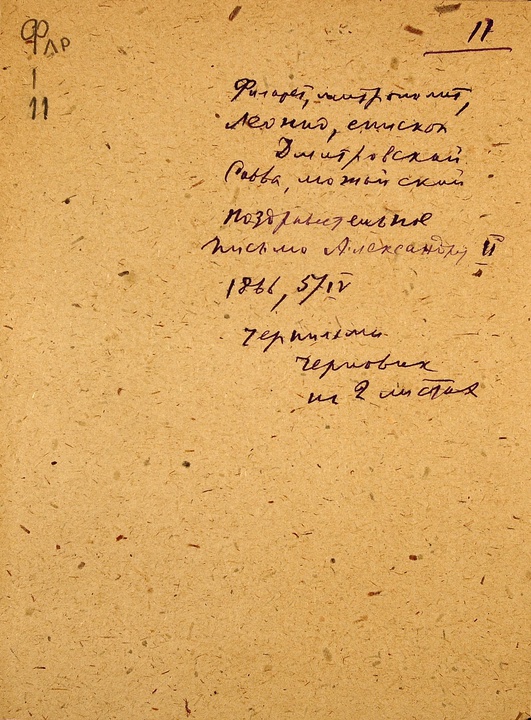 ФЛР
I
11
11
Филарет, митрополит,
Леонид, епископ
Дмитровский
Савва, можайский
поздравительное
письмо Александру II
1866, 5/IV
чернилами
Черновик
на 2 листах